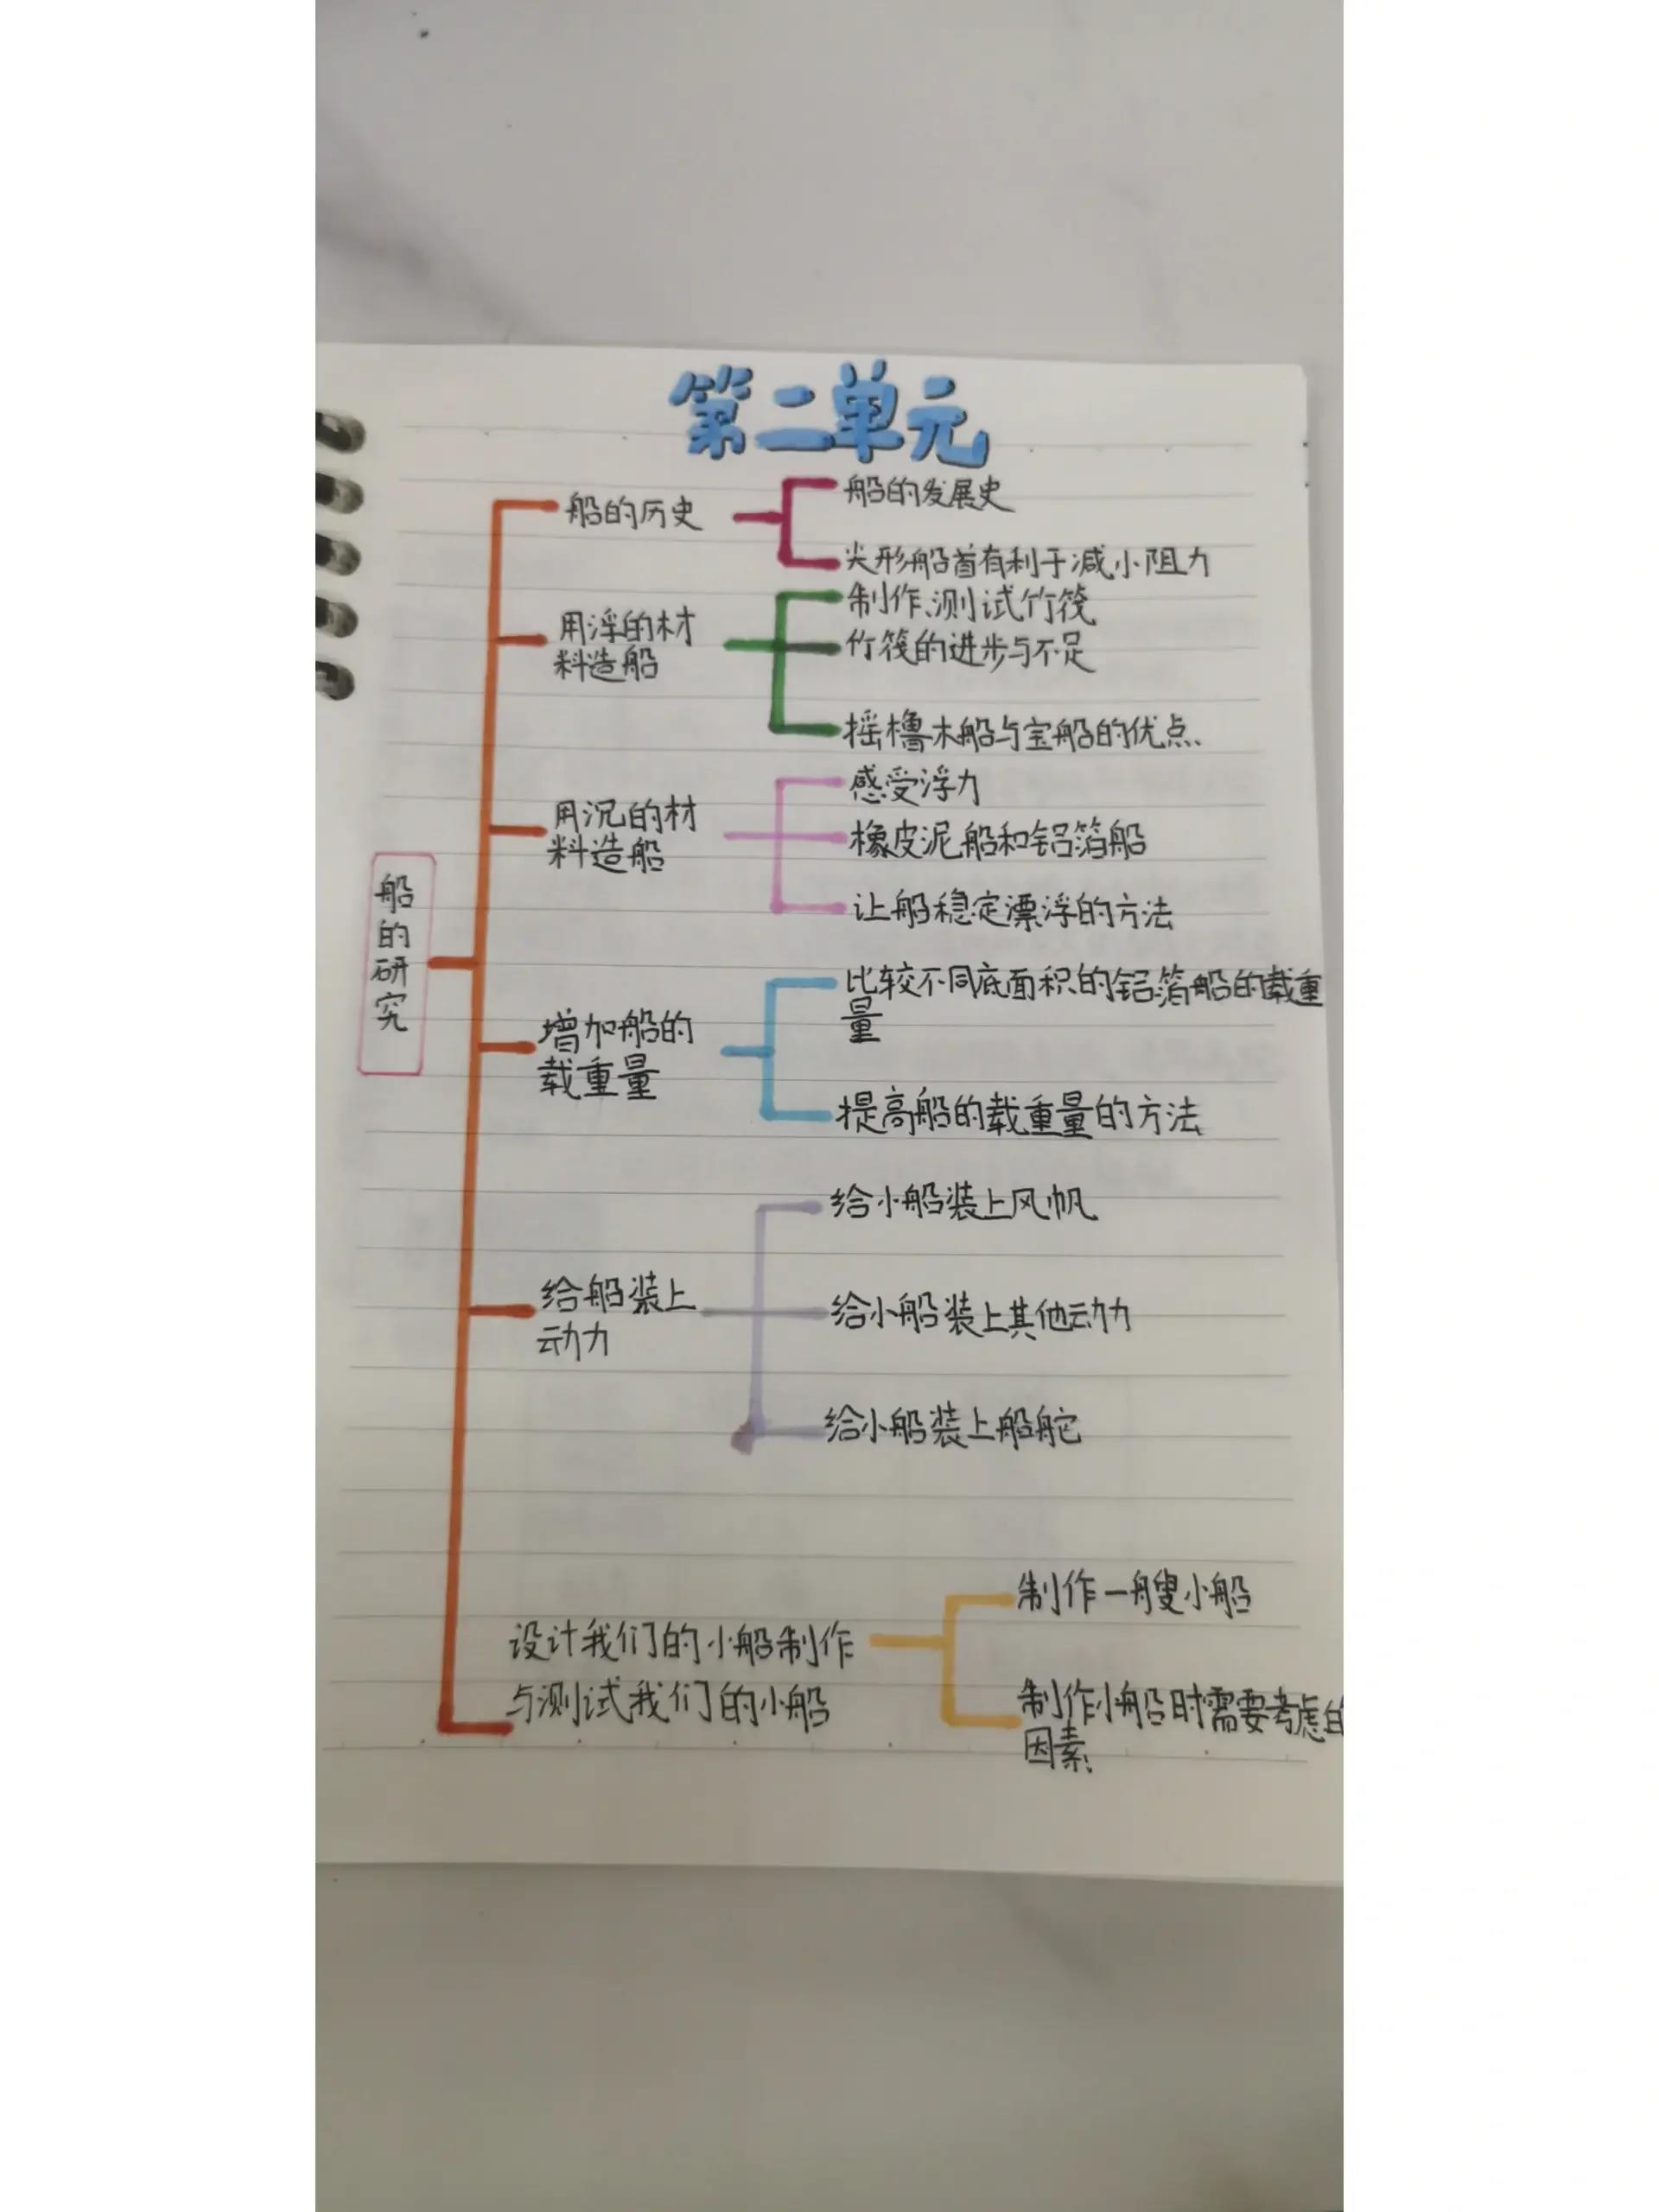 第二单元
船的研究
船的历史
船的发展史
尖形船首有利于减小阻力
用浮的材
料造船
制作、测试竹筏
竹筏的进步与不足
摇橹木船与宝船的优点、
用沉的材
料造船
感受浮力
橡皮泥船和铝箔船
让船稳定漂浮的方法
增加船的
载重量
比较不同底面积的铝箔船的载重
量
提高船的载重量的方法
给船装上
动力
给小船装上风帆
给小船装上其他动力
给小船装上船舵
设计我们的小船制作
与测试我们的小船
制作一艘小船
制作小船时需要考虑的
因素